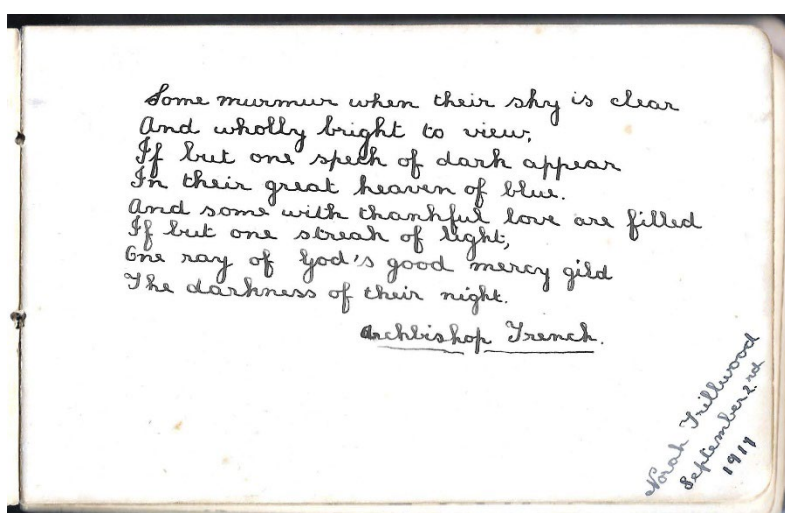 Some murmur when their sky is clear
And wholly bright to view,
If but one speck of dark appear
In their great heaven of blue.
And some with thankful love are filled
If but one streak of light,
One ray of God's good mercy gild
The darkness of their night.
Archbishop Trench.
Norah Trillwood
September 2nd
1917